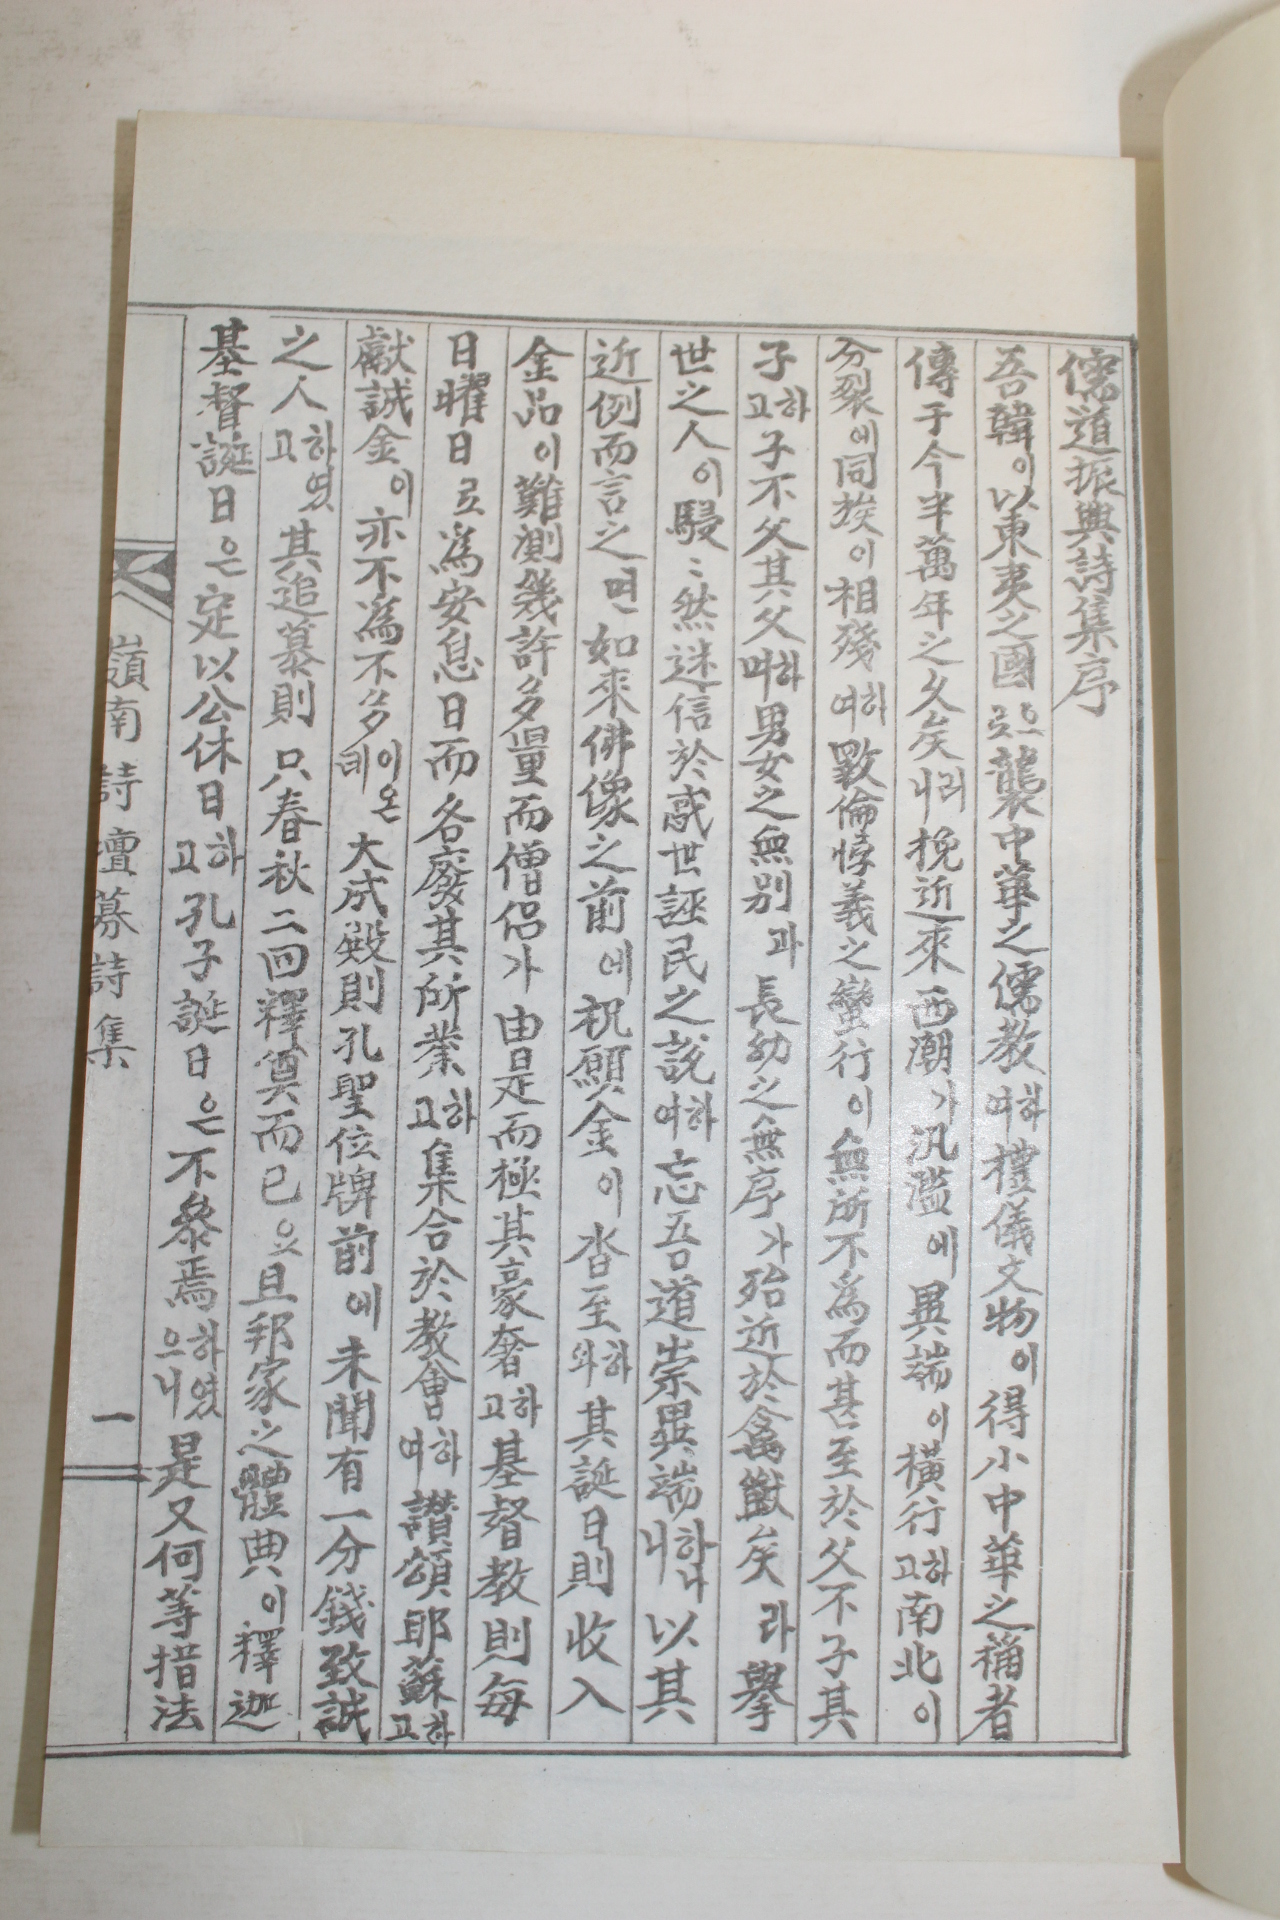 儒道振興詩集序
吾韓이以東夷之國으로襲中華之儒敎하여禮儀文物이得小中華之稱者
傳于今半萬年之久矣러니挽近來西潮가汎濫에異端이橫行하고南北이
分裂에同族이相殘하여斁倫悖義之蠻行이無所不爲而甚至於父不子其
子하고子不父其父하며男女之無別과長幼之無序가殆近於禽獸矣라擧
世之人이駸〻然迷信於惑世誣民之說하여忘吾道崇異端하나니以其
近例而言之면如來佛像之前에祝願金이沓至하와其誕日則收入
金品이難測幾許多量而僧侶가由是而極其豪奢하고基督敎則每
日曜日로爲安息日而各廢其所業하고集合於敎會하여讚頌耶蘇하고
獻誠金이亦不爲不多이온데大成殿則孔聖位牌前에未聞有一分錢致誠
之人하였고其追慕則只春秋二回釋奠而已으且邦家之體典이釋迦
基督誕日은定以公休日하고孔子誕日은不參焉하였으니是又何等措法
嶺南詩壇募詩集
一